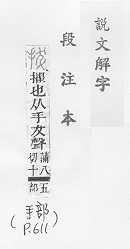 說文解字
段注本
拔 擢也从手犮聲 蒲八切十五部
(手部
P.611)